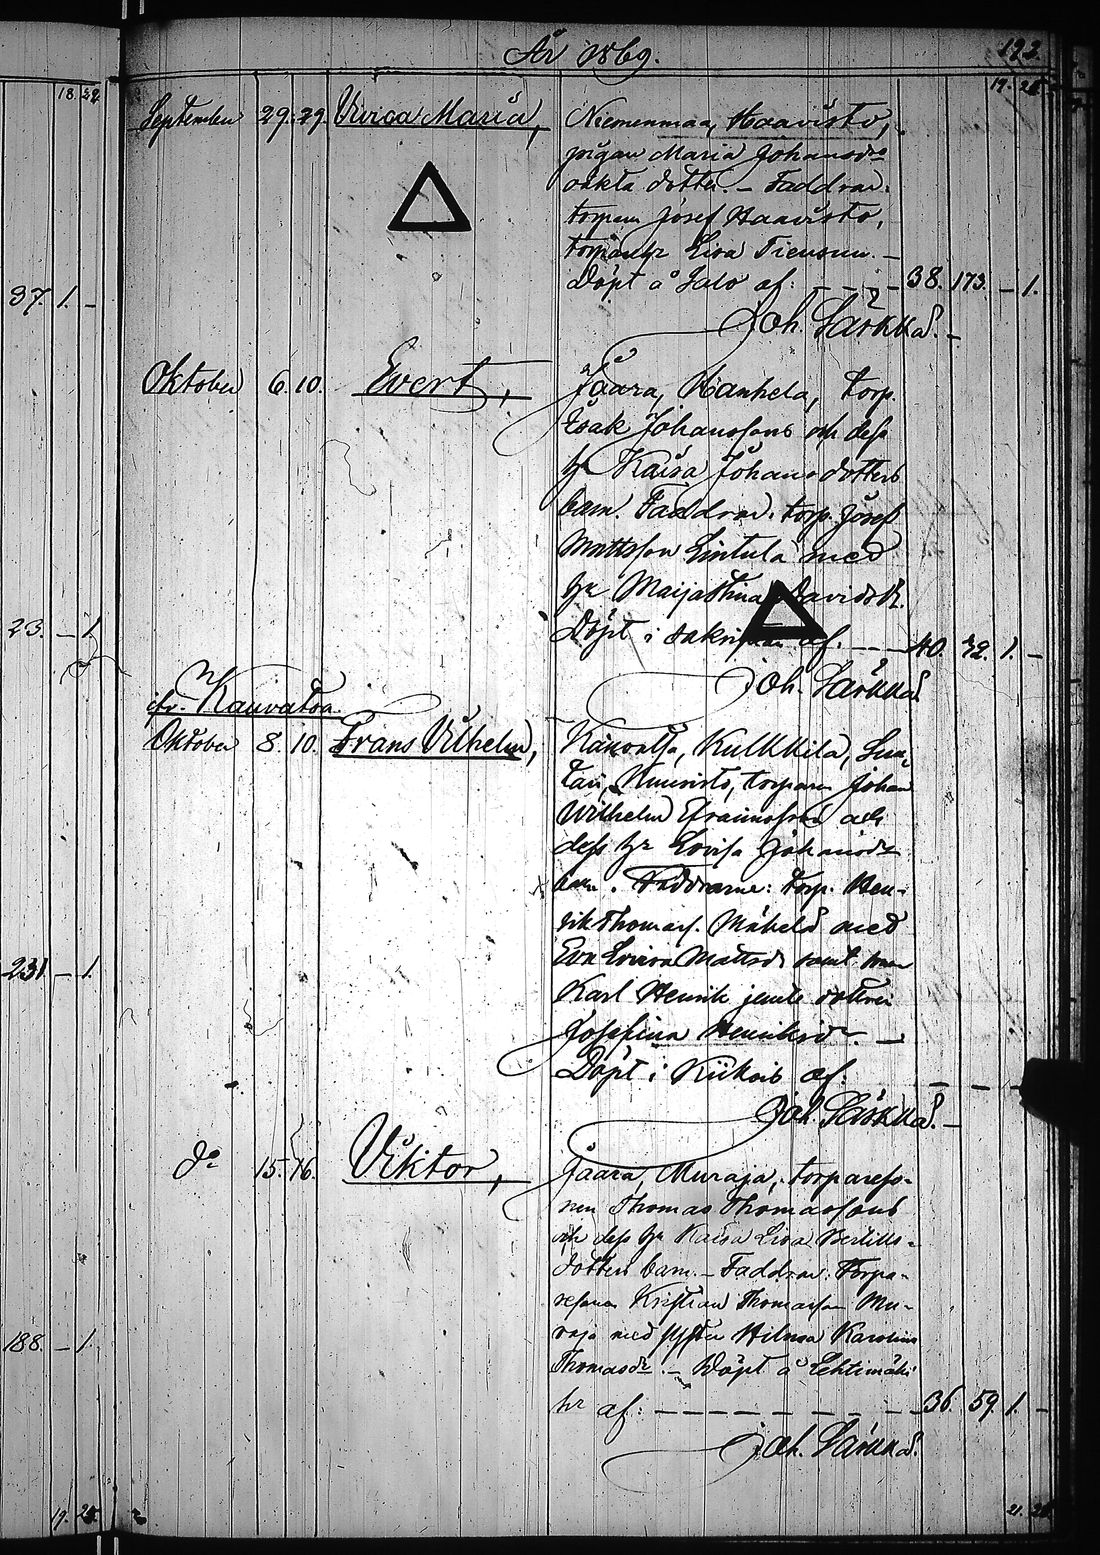 År 1869.
193.
18. 22.
19. 28.
September 29. 29. Vivica Maria,
Niemenmaa, Haavisto,
pigan Maria Johansdr
oäkta dotter. – Faddrar:
torparen Josef Haavisto,
torpare Lisa Tiensuu. –
Döpt å Jalo af: – – – – 38. 173. – 1.
37. 1. –
Joh. Särkkä. –
Oktober 6. 10. Evert,
Jaara, Hankela, torp.
Isak Johanssons och dess
hr Kaisa Johansdotters
barn. Faddrar: torp. Josef
Mattsson Lintula med
hr Maja Stina Davidsdr.
Döpt i sakristian af. – – – 40. 1. –
23. – 1.
Joh. Särkkä.
ifr. Kauvatsa.
Oktober 8. 10. Frans Vilhelm,
Kauvatsa, Kulkkila,
torparen Johan
Wilhelm Efraimsson och
dess hr Lovisa Johansdr
barn. Faddrarne: torp. Hen-
rik Thomass. Mäkelä med
Eva Lovisa Mattsdr samt
Karl Henrik jemte dottren
Josefina Henriksdr. –
Döpt i Kiikois af: – – –
231. – 1.
Joh. Särkkä. –
do 15. 16. Viktor,
Jaara, Muraja, torpareso-
nen Thomas Thomassons
och dess hr Kaisa Lisa Bertills-
dotters barn. – Faddrar: Torpa-
resonen Kristian Thomasson Mu-
raja med syster Hilma Karolina
Thomasdr. – Döpt å Lehtimäki
af: – – – – – – – – 36. 59. 1. –
188. – 1.
Joh. Särkkä.
19. 25.
21. 28.